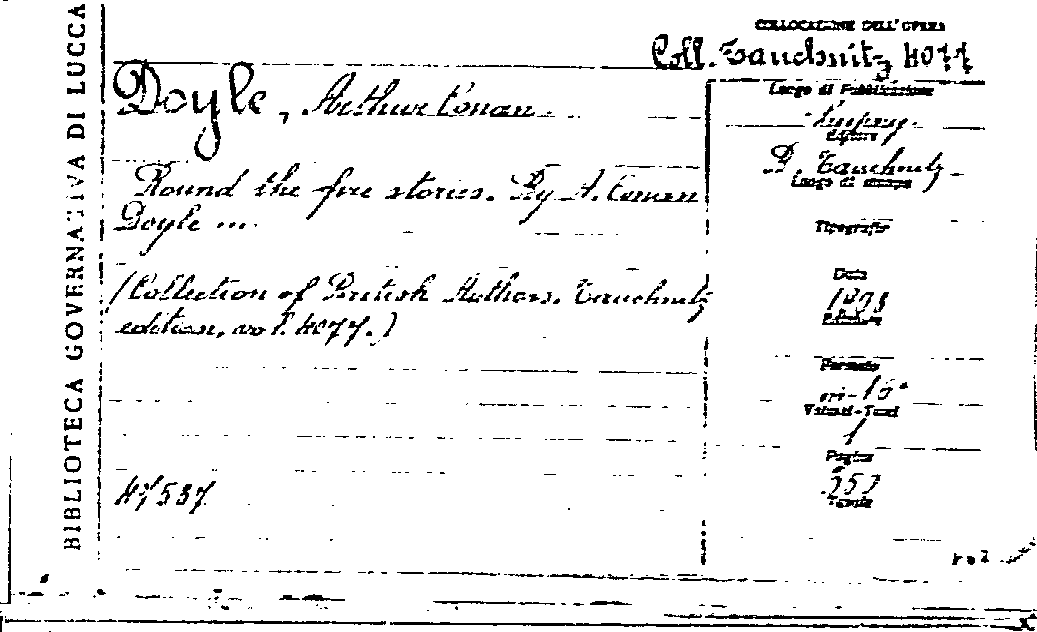 BIBLIOTECA GOVERNATIVA DI LUCCA
COLLOCAZIONE DELL'OPERA
Coll. Tauchnitz 4077
Doyle, Arthur Conan.
Round the fire stories. By A. Conan
Doyle ....
(Collection of British Authors. Tauchnitz
edition, vol. 4077.)
47537
Luogo di Pubblicazione
Editore
B. Tauchnitz
Luogo di stampa
Tipografia
Data
Formato
in-16°
Volumi-Tomi
1
Pagine
Tavole